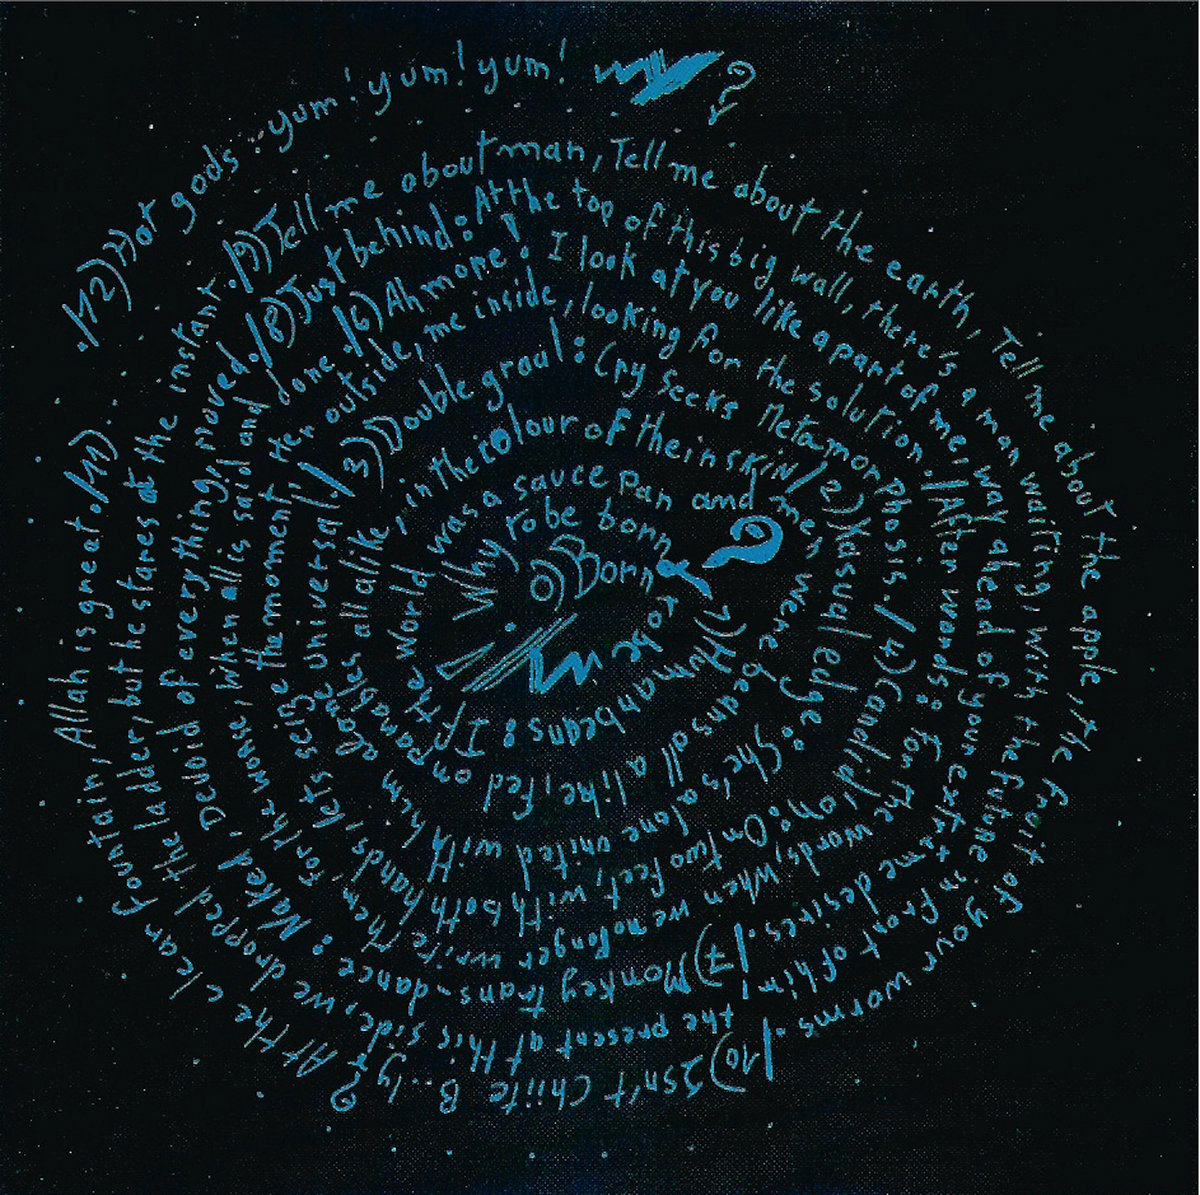 0) Born to be
Why to be born ?
1) Human beans : If the world was a sauce pan and men were beans all alike, fed on panables all alike, in the colour of the in skin /
2) Kasual edge : She's alone united with him alone universal. /
3) Double graal : Cry seeks metamorphosis. /
4) Candid ion : On two feet, with both hands, lets seize the moment, Her outside, me inside, looking for the solution. /
After words : For the words, when we no longer write them, For the worse, When all is said and done. /
6) Ah more ! I look at you like a part of me, way ahead of your extreme desires. /
7) Monkey trans-dance : Naked, Devoid of everything, moved. /
8) Just behind : At the top of this big wall, there's a man waiting, with the future in front of him, the present at this side, we dropped the ladder, but he stares at the instant. /
9) Tell me about man, Tell me about the earth, Tell me about the apple, the fruit of your worms. /
10) Isn't Chiite B..ly ? At the clear fountain, Allah is great. /
11). /
12) Hot gods : yum ! yum ! yum ! ?